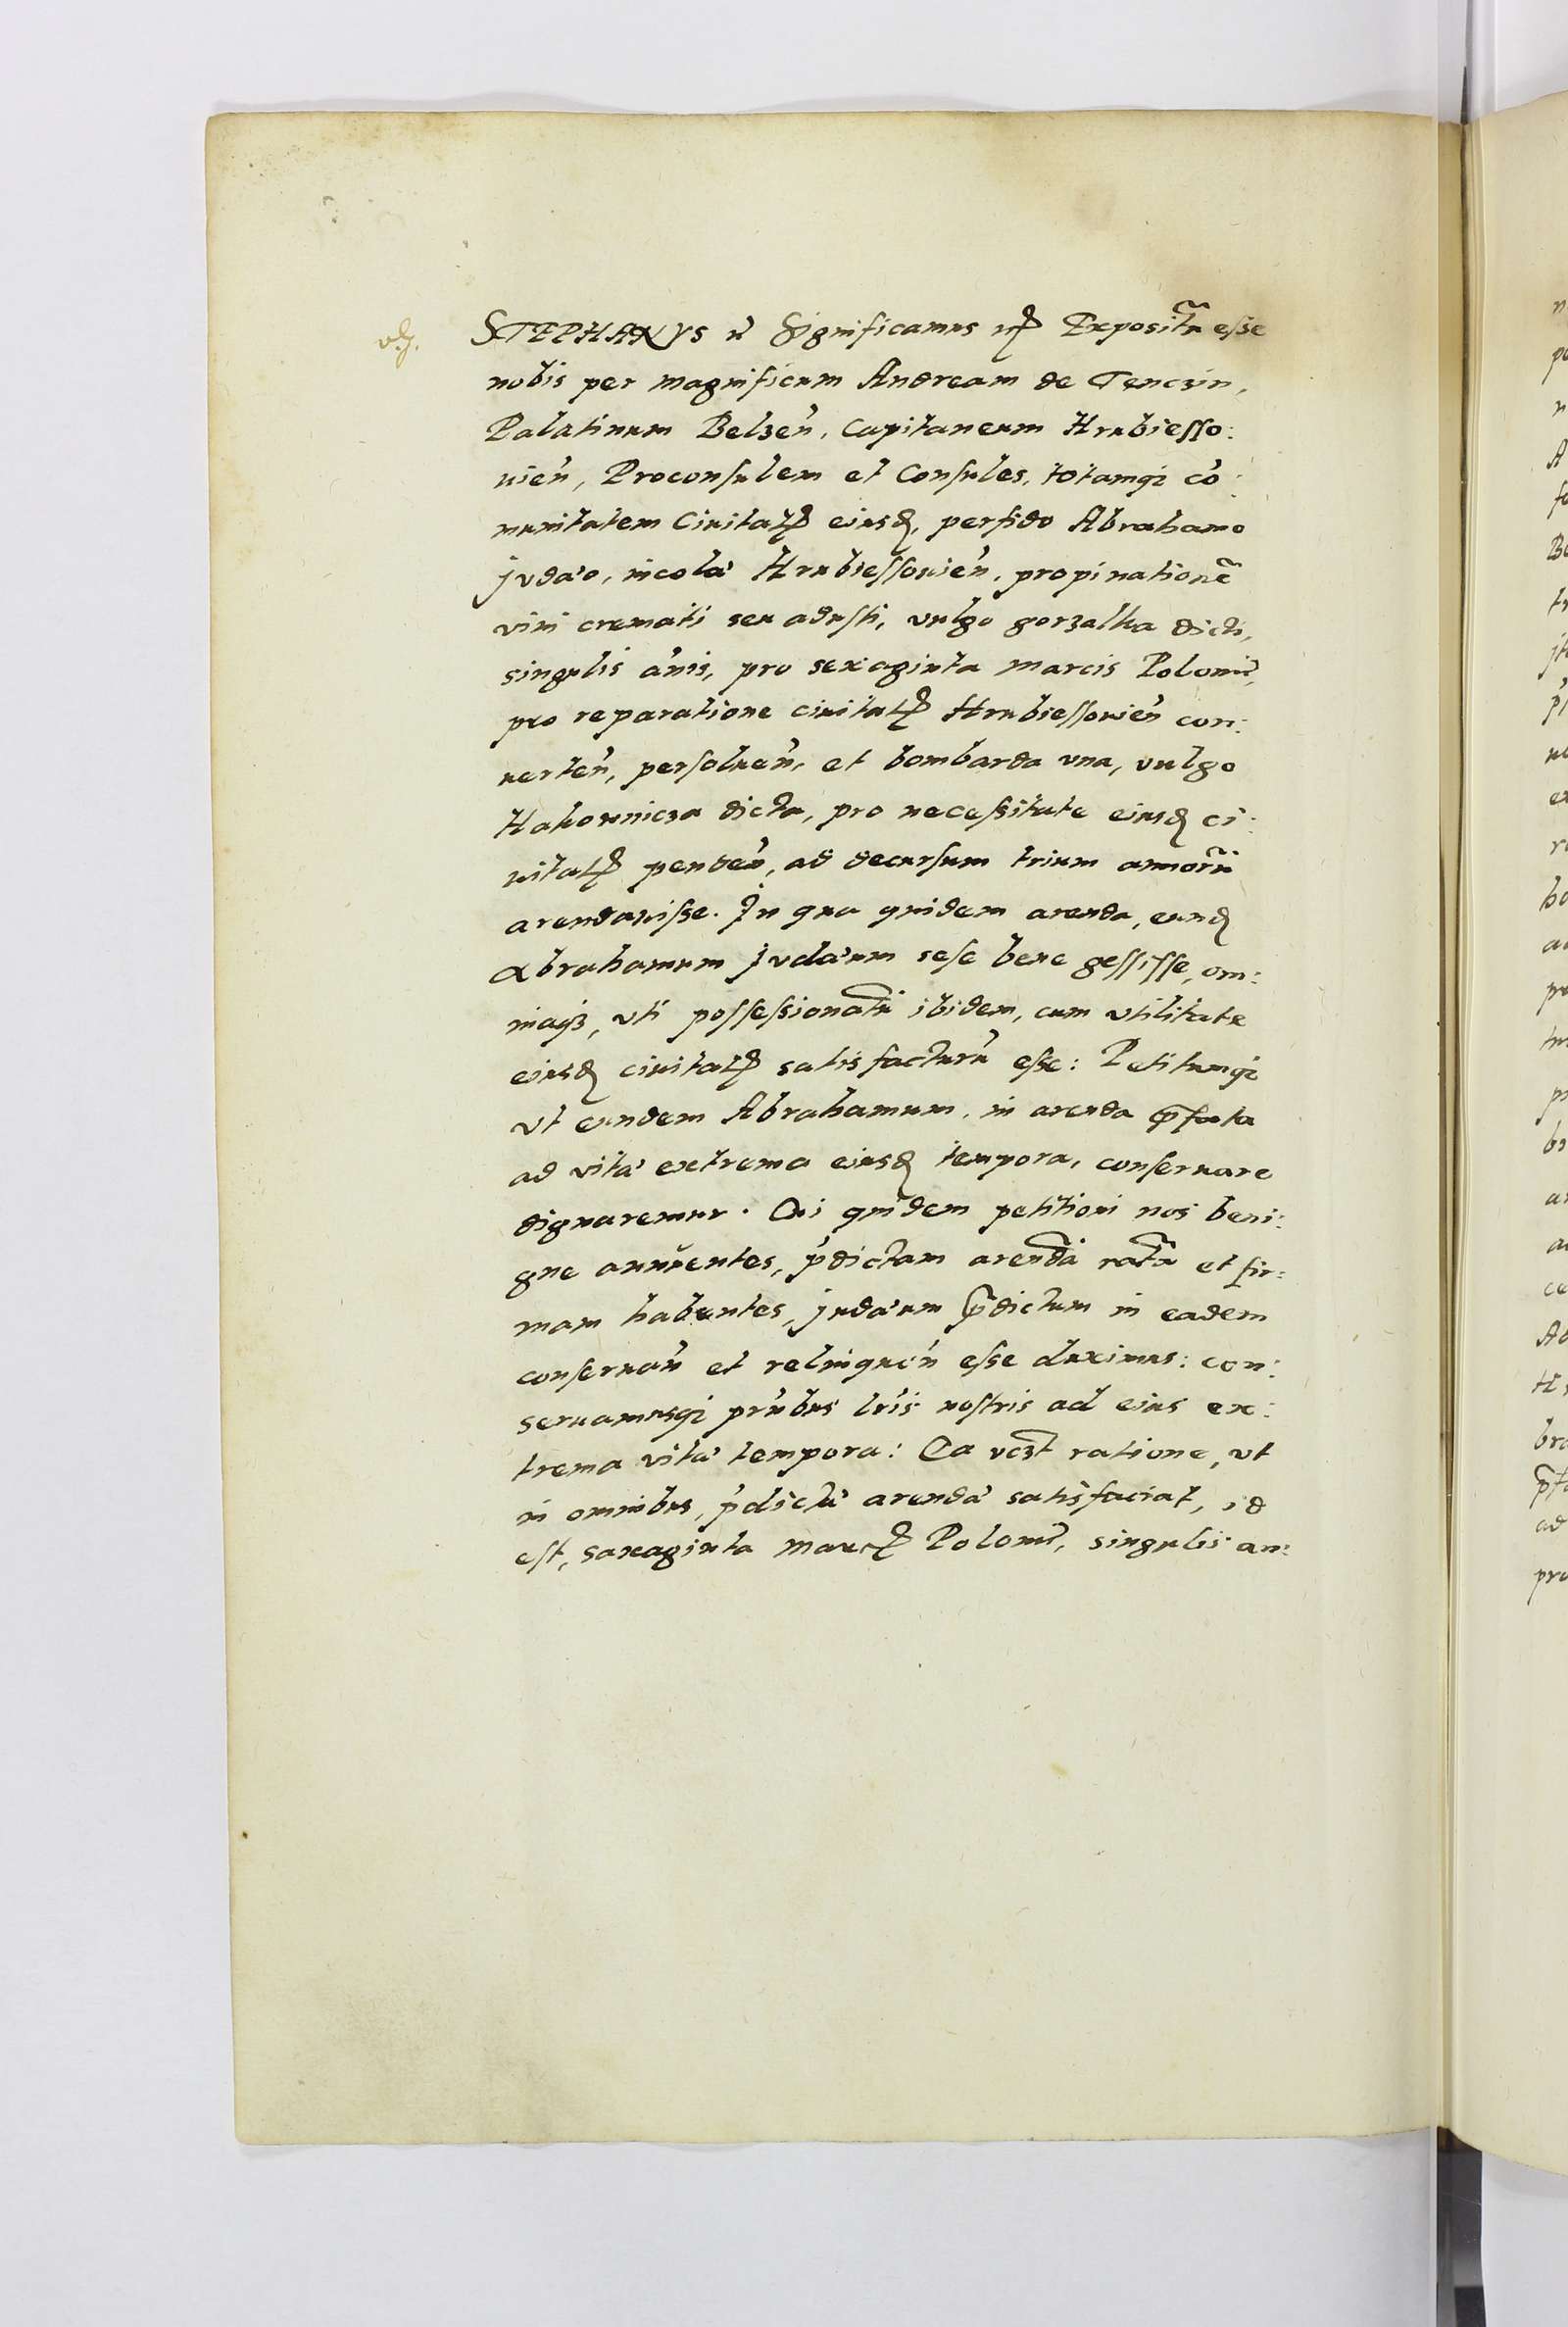 STEPHANVS etc̃ Significamus etc̃ Expositũ esse
nobis per magnificum Andream de Tenczin,
Palatinum Belzeñ, Capitaneum Hrubiesso:
uieñ, Proconsulem et Consules, totamq̃ cõ:
munitatem Ciuitatꝭ eiusđ, perfido Abrahamo
judæo, incolæ Hrubiessouieñ, propinationẽ
vini cremati seu adusti, vulgo gorzalka dicti,
singulis ãnis, pro sexaginta marcis Poloni̴,
pro reparatione ciuitatꝭ Hrubiessouieñ con:
uerteñ, persolueñ, et bombarda vna, vulgo
Hakownicza dicta, pro necessitate eiusđ ci:
uitatꝭ pendeñ, ad decursum trium annorũ
arendauisse. In qua quidem arenda, eunđ
Abrahamum judæum sese bene gessisse, om:
niaqꝫ, vti possessionatũ ibidem, cum vtilitate
eiusđ ciuitatꝭ satisfacturũ esse: Petitumq̃
vt eundem Abrahamum, in arenda p̃fata
ad vitæ extrema eiusđ tempora, conseruare
dignaremur. Cui quidem petitioni nos beni:
gne annuentes, p̃dictam arendã ratã et fir:
mam habentes, judæum p̃dictum in eadem
conseruañ et relinqueñ esse duximus: con:
seruamusq̃ pñtibus lr̃is nostris ad eius ex:
trema vitæ tempora: Ea vczt ratione, vt
in omnibus, p̃dictæ arendæ satisfaciat, id
est, saxaginta marcꝭ Poloni̴, singulis an: